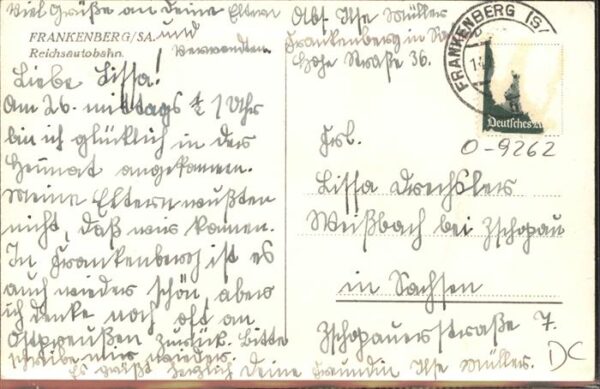 Viel Grüße an Deine Eltern
und
Verwandten.
FRANKENBERG/SA.
Reichsautobahn.
Liebe Lissa!
Am 26. mittags ½ 1 Uhr
bin ich glücklich in der
Heimat angekommen.
Meine Eltern wußten
nicht, daß wir kamen.
In Frankenberg ist es
auch wieder schön, aber
ich denke noch oft an
Ostpreußen zurück. Bitte
schreibe mir wieder.
Es grüßt herzlich Deine Freundin Ilse Müller.
Abs. Ilse Müller
Frankenberg in Sa
Hohe Straße 36.
FRANKENBERG (S
Deutsches
O-9262
Frl.
Lissa Drechsler
Weißbach bei Zschopau
in Sachsen
Zschopauerstraße 7.
DC